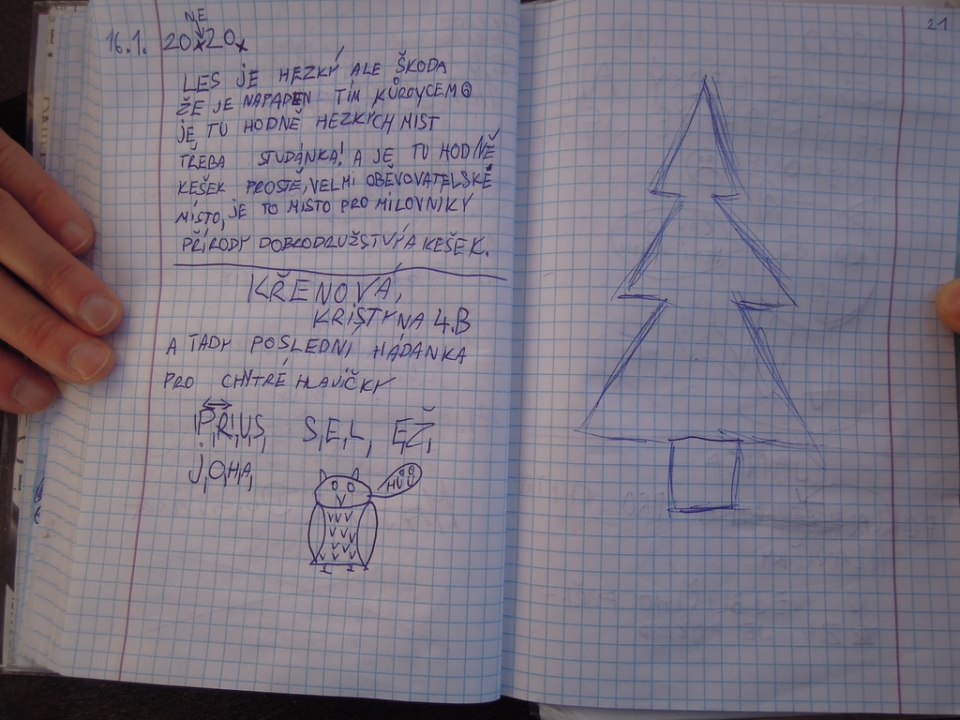 NE
16.1. 20x20x
LES JE HEZKÝ ALE ŠKODA
ŽE JE NAPADEN TÍM KŮROVCEM
JE TU HODNĚ HEZKÝCH MÍST
TŘEBA STUDÁNKA! A JE TU HODNĚ
KEŠEK PROSTĚ, VELMI OBĚVOVATELSKÉ
MÍSTO, JE TO MÍSTO PRO MILOVNÍKY
PŘÍRODY DOBRODRUŽSTVÝ A KEŠEK.
KŘENOVÁ,
KRISTÝNA 4.B
A TADY POSLEDNÍ HÁDANKA
PRO CHYTRÉ HLAVIČKY
P,Ř,U,S, S,E,L, E,Ž,
J,O,H,A,
HÚÚ
21